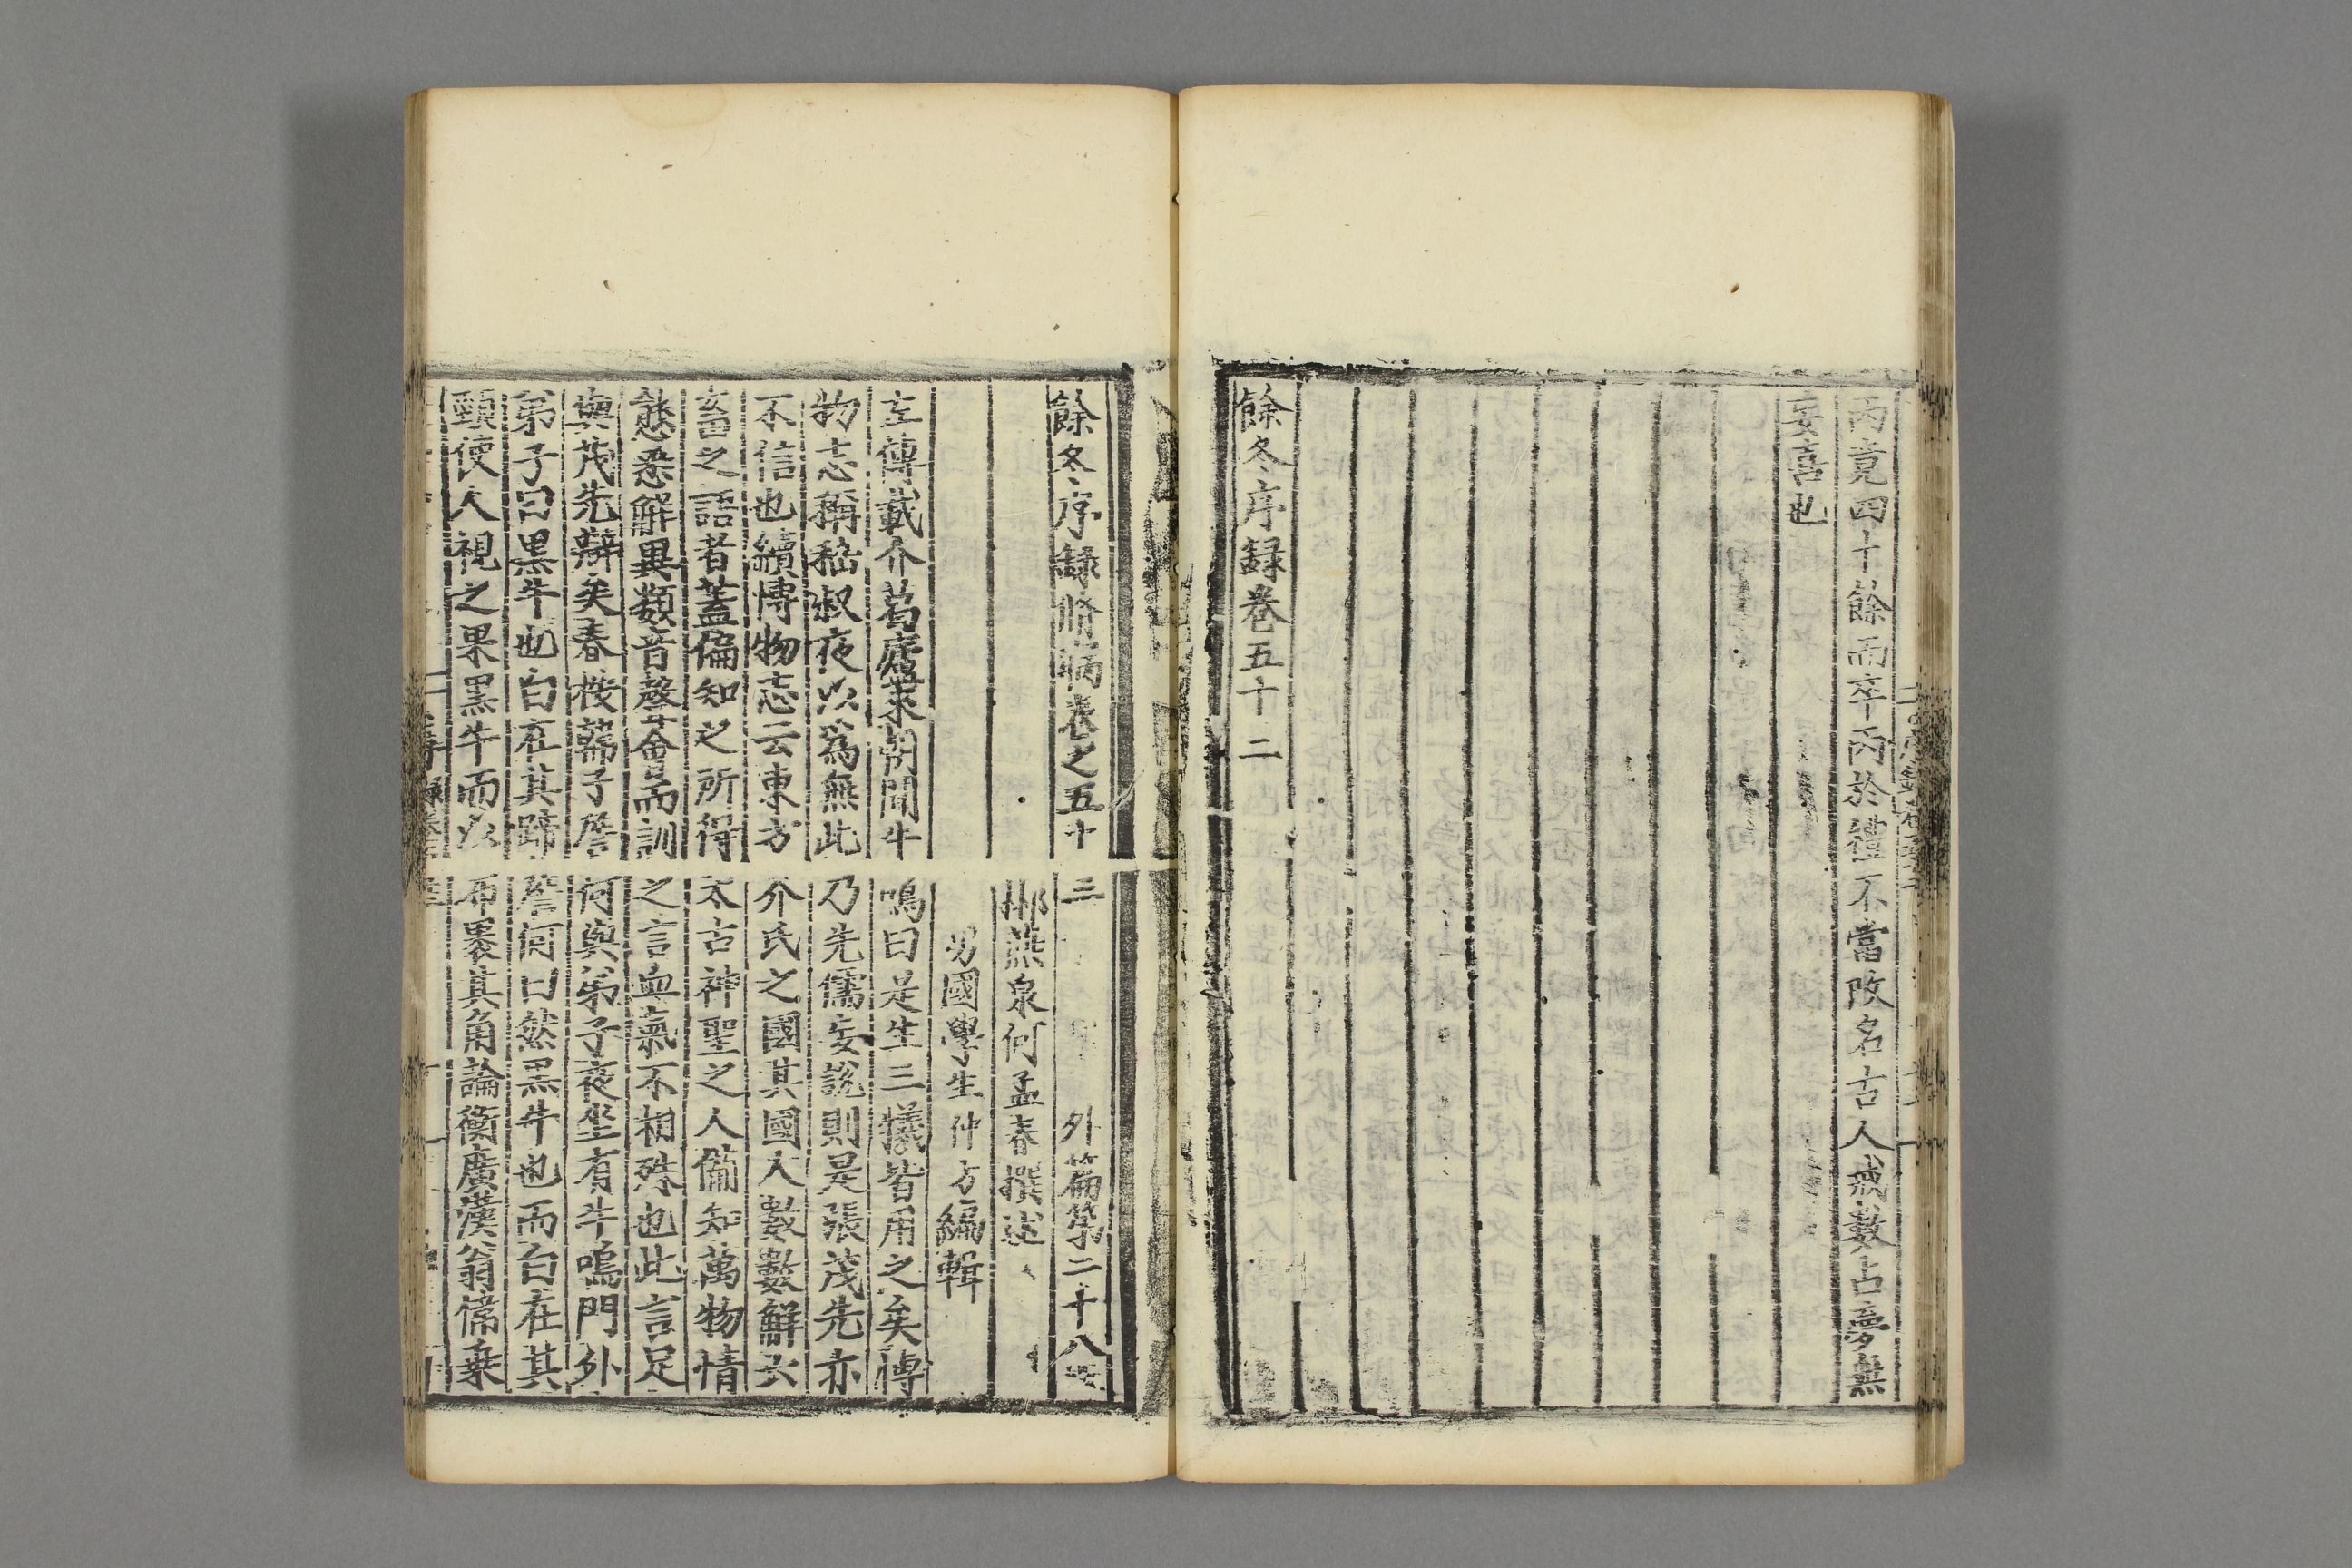 丙竟四十餘而卒丙於禮不當改名古人戒數占夢無
妄喜也
餘冬序録卷五十二
餘冬序録 卷之五十三 外篇第二十八
郴燕泉何孟春撰述
男國學生仲方編輯
左傳載介葛盧來朝聞牛鳴曰是生三犧皆用之矣博
物志稱嵇叔夜以爲無此乃先儒妄說則是張茂先亦
不信也續博物志云東方介氏之國其國人數數解六
畜之語者蓋偏知之所得太古神聖之人備知萬物情
態悉解異類音聲會而訓之言血氣不相殊也此言足
與茂先辯矣春按韓子詹何與弟子夜坐有牛鳴門外
弟子曰黑牛也白在其蹄詹何曰然黑牛也而白在其
頸使人視之果黑牛而以布褁其角論衡廣漢翁偉乗